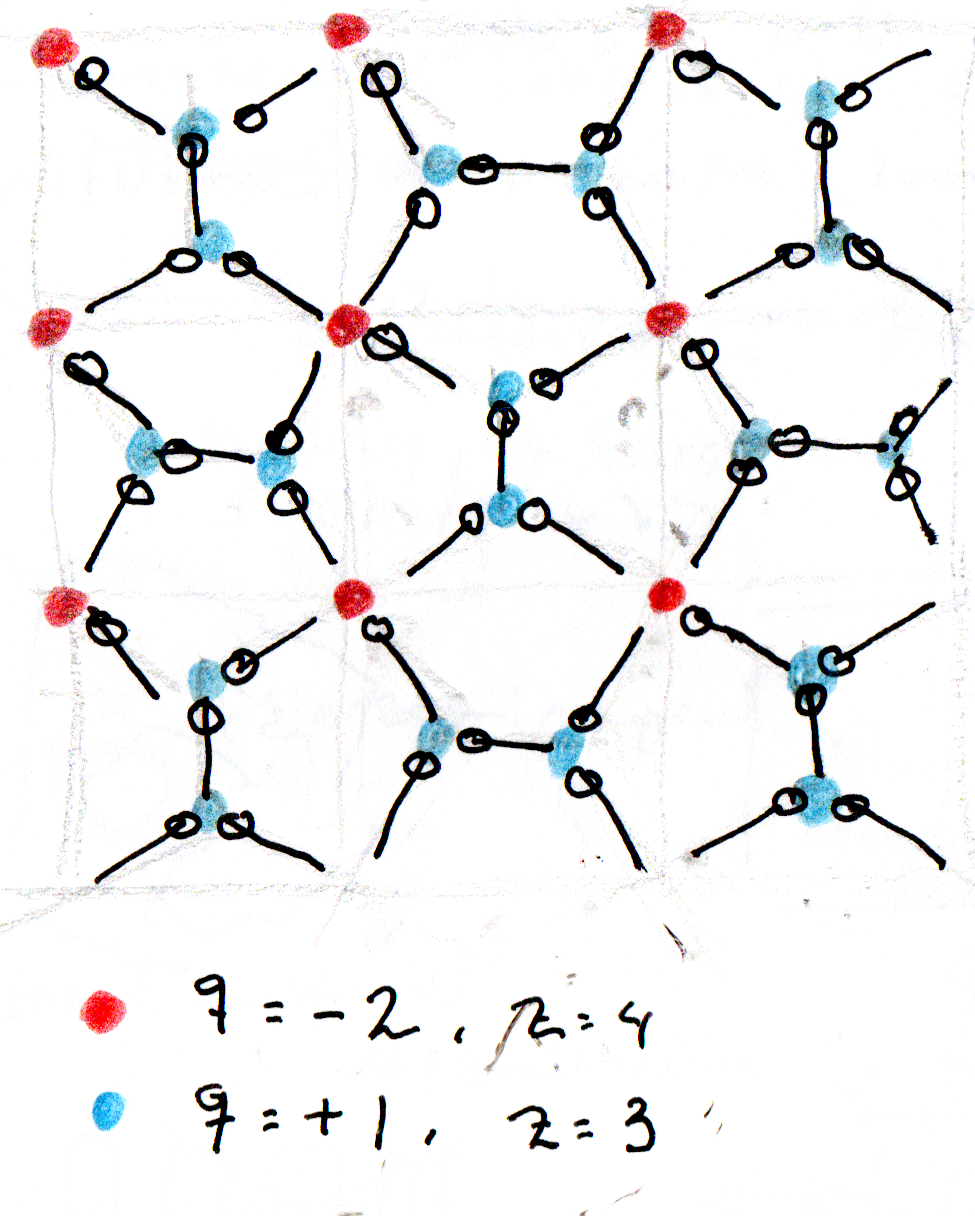 q = -2, z = 4
q = +1, z = 3